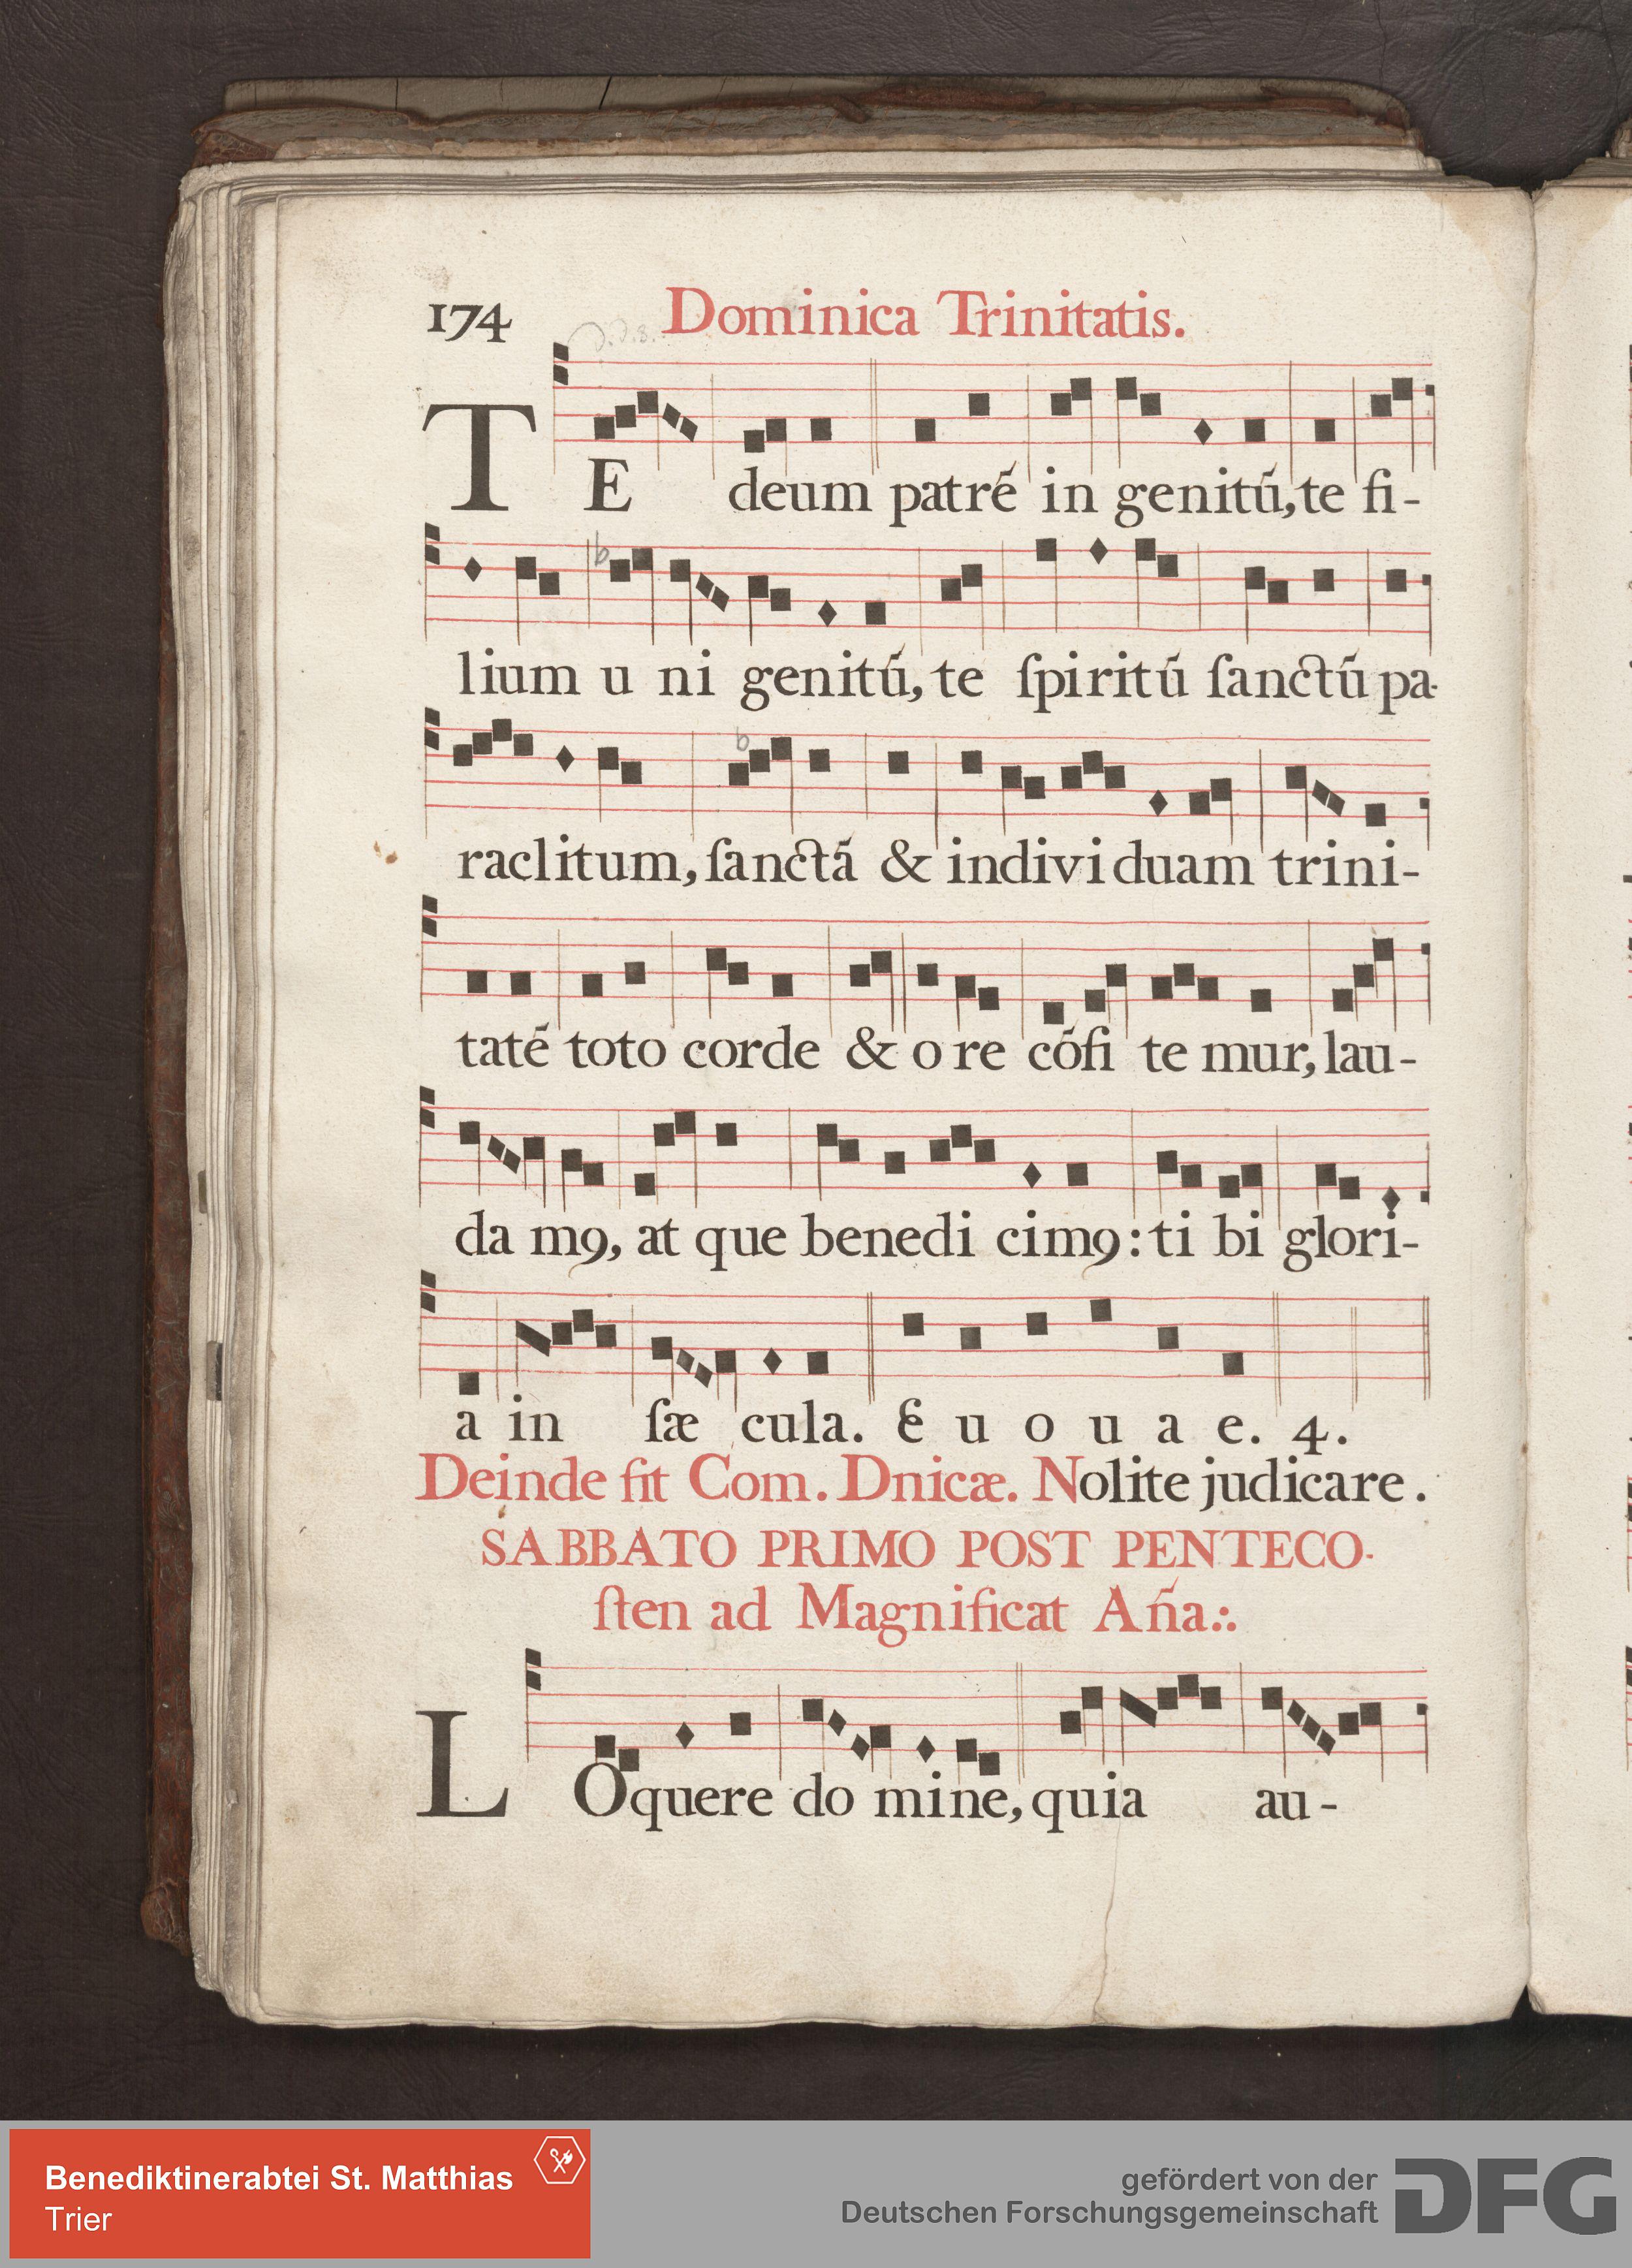 174 Dominica Trinitatis.
TE deum patrē in genitū, te fi-
lium u ni genitū, te ſpiritū ſanctū pa-
raclitum, ſanctā & indivi duam trini-
tatē toto corde & o re cōfi te mur, lau-
da mꝰ, at que benedi cimꝰ: ti bi glori-
a in ſæ cula. E u o u a e. 4.
Deinde fit Com. Dnicæ. Nolite judicare.
SABBATO PRIMO POST PENTECO-
ſten ad Magnificat An̄a:.
LOquere do mine, quia au-
Benediktinerabtei St. Matthias
Trier
gefördert von der
Deutschen Forschungsgemeinschaft
DFG